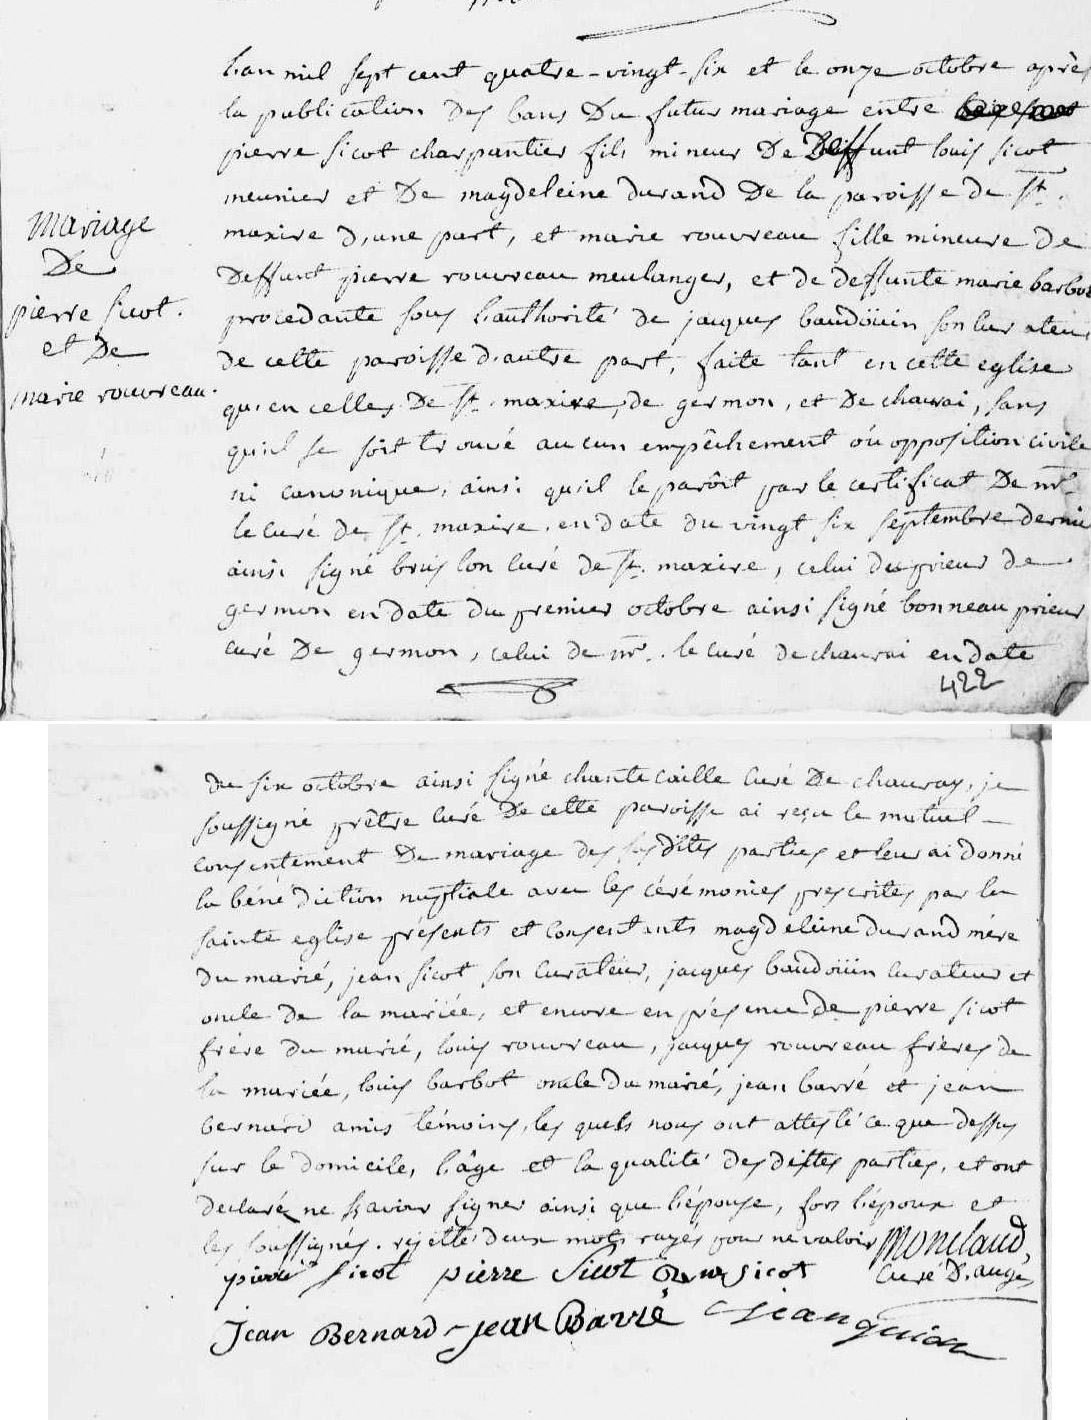 L'an mil sept cent quatre-vingt-six et le onze octobre après
la publication des bans Du futur mariage entre
pierre sicot charpantier fils mineur De Deffunt louis sicot
meunier et De magdeleine durand De la paroisse de St.
maxire d'une part, et marie rouvreau fille mineure de
Deffunt pierre rouvreau meulanger, et de deffunte marie barbot
procedante sous l'authorité de jacques baudoüin son curateur
de cette paroisse d'autre part, faite tant en cette eglise
qu'en celles De St. maxire, de germon, et De chavrai, sans
qu'il se soit trouvé aucun empêchement óu opposition civile
ni canonique, ainsi qu'il le parôit par le certificat De mr.
le curé de St. maxire. en date du vingt six septembre dernier
ainsi signé bruslon curé de St. maxire, celui du prieur de
germon en date du premier octobre ainsi signé bonneau prieur
curé De germon, celui de mr. le curé de chavrai en date
422
Mariage
De
pierre sicot.
et De
marie rouvreau.
du six octobre ainsi signé chantecaille curé De chauray, je
soussigné prêtre curé De cette paroisse ai reçu le mutuel
consentement De mariage des susdites parties et leur ai donné
la bénédiction nuptiale avec les cérémonies prescrites par la
sainte eglise présents et consentants magdeleine durand mére
du marié, jean sicot son curateur, jacques baudoüin curateur et
oncle de la mariée, et encore en présence de pierre sicot
frére du marié, louis rouvreau, jacques rouvreau fréres de
la mariée, louis barbot oncle du marié, jean barré et jean
bernard amis témoins, les quels nous ont attesté ce que dessus
sur le domicile, l'âge et la qualité des dittes parties, et ont
declaré ne sçavoir signer ainsi que l'épouse, fors l'époux et
les soussignés. rejetté deux mots rayés pour ne valoir Monclaud,
pierre sicot pierre Sicot sicot curé D'augé
Jean Bernard jean Barré